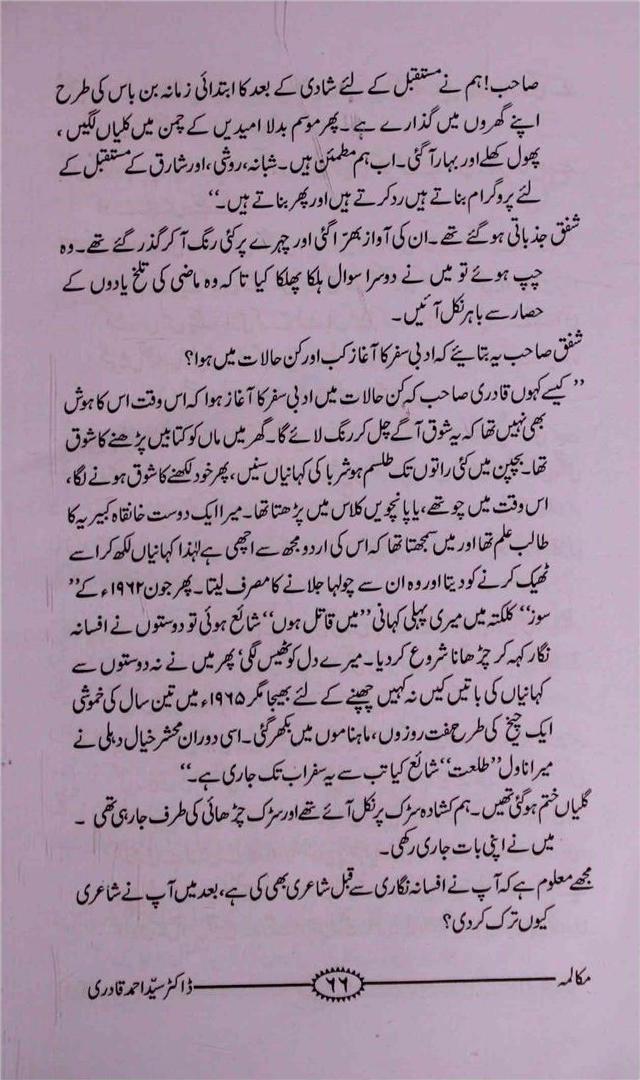 صاحب! ہم نے مستقبل کے لئے شادی کے بعد کا ابتدائی زمانہ بن باس کی طرح
اپنے گھروں میں گذارے ہے۔ پھر موسم بدلا امیدیں کے چمن میں کلیاں لگیں،
پھول کھلے اور بہار آ گئی۔ اب ہم مطمئن ہیں۔ شبانہ، روشی، اور شارق کے مستقبل کے
لئے پروگرام بناتے ہیں رد کرتے ہیں اور پھر بناتے ہیں۔“
شفق جذباتی ہو گئے تھے۔ ان کی آواز بھرّا گئی اور چہرے پر کئی رنگ آ کر گذر گئے تھے۔ وہ
چپ ہوئے تو میں نے دوسرا سوال ہلکا پھلکا کیا تا کہ وہ ماضی کی تلخ یادوں کے
حصار سے باہر نکل آئیں۔
شفق صاحب یہ بتایئے کہ ادبی سفر کا آغاز کب اور کن حالات میں ہوا؟
”کیسے کہوں قادری صاحب کہ کن حالات میں ادبی سفر کا آغاز ہوا کہ اس وقت اس کا ہوش
بھی نہیں تھا کہ یہ شوق آگے چل کر رنگ لائے گا۔ گھر میں ماں کو کتابیں پڑھنے کا شوق
تھا۔ بچپن میں کئی راتوں تک طلسم ہوشربا کی کہانیاں سنیں، پھر خود لکھنے کا شوق ہونے لگا،
اس وقت میں چوتھے، یا پانچویں کلاس میں پڑھتا تھا۔ میرا ایک دوست خانقاہ کبیریہ کا
طالب علم تھا اور میں سمجھتا تھا کہ اس کی اردو مجھ سے اچھی ہے لہٰذا کہانیاں لکھ کر اسے
ٹھیک کرنے کو دیتا اور وہ ان سے چولہا جلانے کا مصرف لیتا۔ پھر جون ۱۹۶۲ء کے ”
سوز“ کلکتہ میں میری پہلی کہانی ”میں قاتل ہوں“ شائع ہوئی تو دوستوں نے افسانہ
نگار کہہ کر چڑھانا شروع کر دیا۔ میرے دل کو ٹھیس لگی‘ پھر میں نے نہ دوستوں سے
کہانیاں کی باتیں کیں نہ کہیں چھپنے کے لئے بھیجا مگر ۱۹۶۵ء میں تین سال کی خموشی
ایک چیخ کی طرح ہفت روزوں، ماہناموں میں بکھر گئی۔ اسی دوران محشر خیال دہلی نے
میرا ناول ”طلعت“ شائع کیا تب سے یہ سفر اب تک جاری ہے۔“
گلیاں ختم ہو گئی تھیں۔ ہم کشادہ سڑک پر نکل آئے تھے اور سڑک چڑھائی کی طرف جا رہی تھی۔
میں نے اپنی بات جاری رکھی۔
مجھے معلوم ہے کہ آپ نے افسانہ نگاری سے قبل شاعری بھی کی ہے، بعد میں آپ نے شاعری
کیوں ترک کر دی؟
مکالمہ ۶۶ ڈاکٹر سیّد احمد قادری